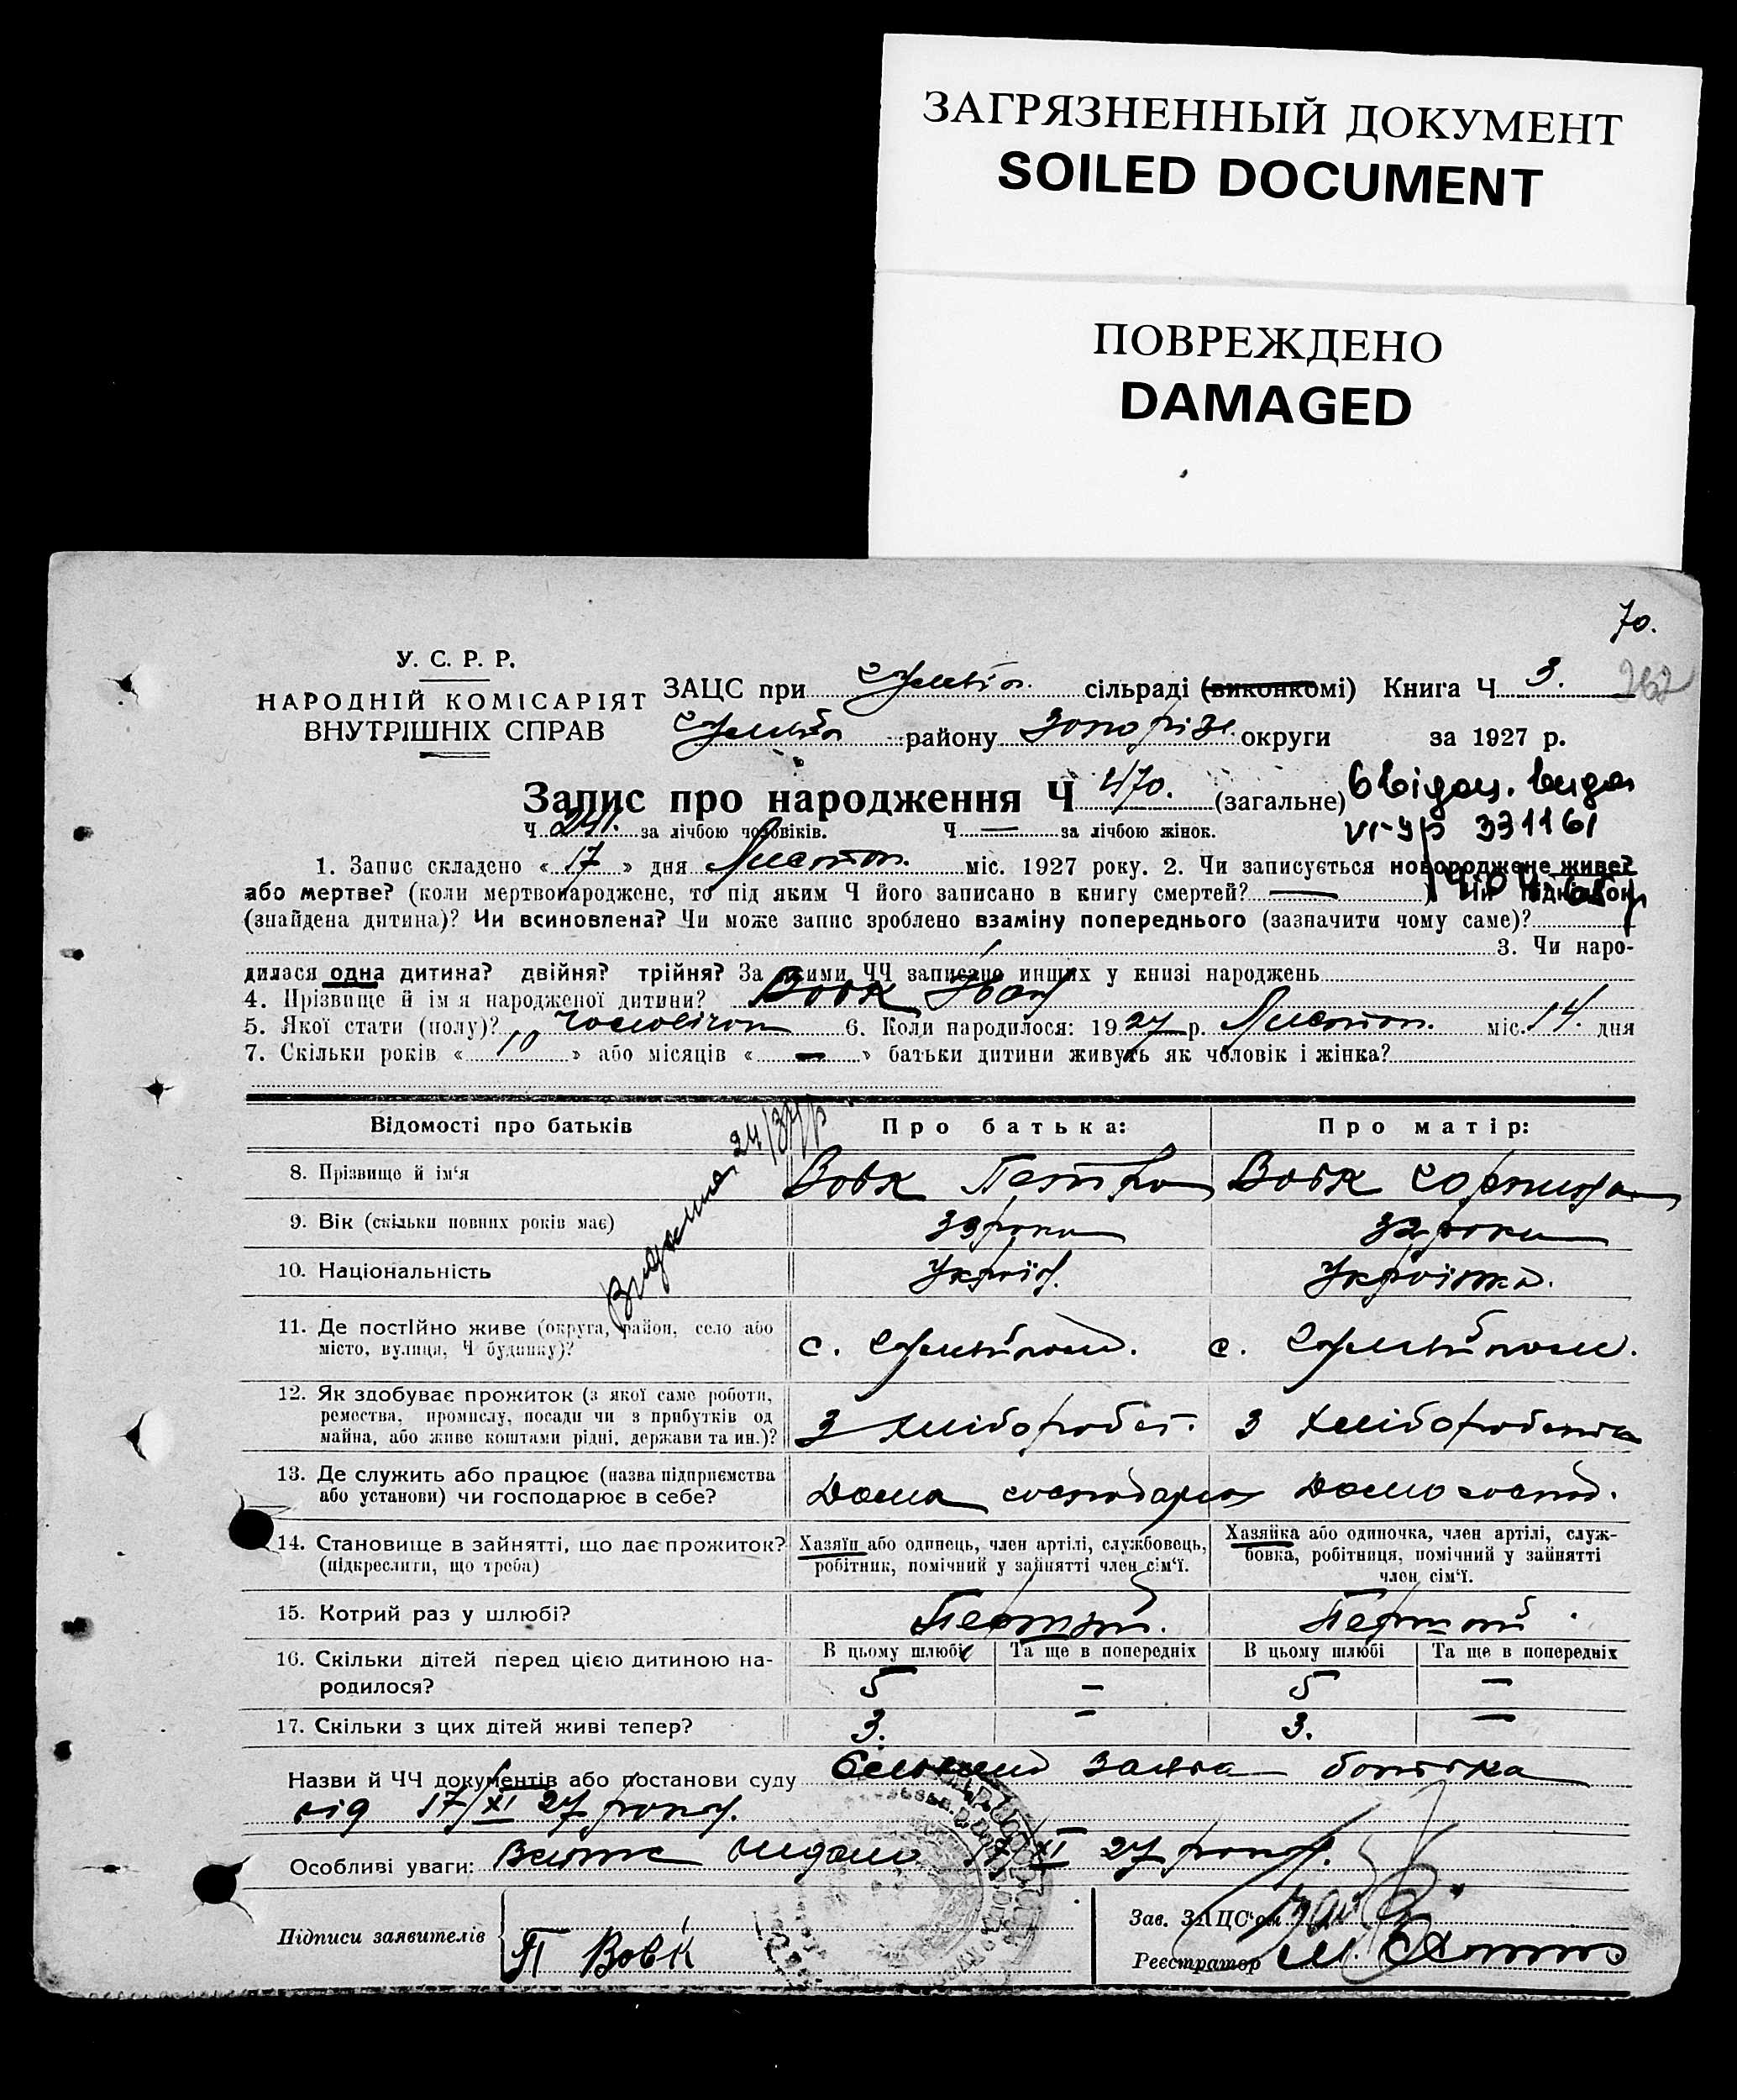 ЗАГРЯЗНЕННЫЙ ДОКУМЕНТ
SOILED DOCUMENT
ПОВРЕЖДЕНО
DAMAGED
70.
262
У. С. Р. Р.
НАРОДНІЙ КОМІСАРІЯТ
ВНУТРІШНІХ СПРАВ
ЗАЦС при сільраді (виконкомі) Книга Ч 3.
району Запоріж. округи за 1927 р.
Запис про народження Ч 470. (загальне)
Ч 241. за лічбою чоловіків. Ч — за лічбою жінок.
331161
1. Запис складено « 17 » дня Листоп. міс. 1927 року. 2. Чи записується новороджене живе?
або мертве? (коли мертвонароджене, то під яким Ч його записано в книгу смертей? — ) Чи підкидьок
(знайдена дитина)? Чи всиновлена? Чи може запис зроблено взаміну попереднього (зазначити чому саме)?
3. Чи наро-
дилася одна дитина? двійня? трійня? За якими ЧЧ записано инших у книзі народжень
4. Прізвище й ім'я народженої дитини? Вовк Іван
5. Якої стати (полу)? 6. Коли народилося: 1927 р. Листоп. міс. 14. дня
7. Скільки років « 10 » або місяців « — » батьки дитини живуть як чоловік і жінка?
Відомості про батьків
Про батька:
Про матір:
8. Прізвище й ім'я
Вовк Петро
Вовк
9. Вік (скільки повних років має)
39 роки
32 роки
10. Національність
Україн.
Українка.
11. Де постійно живе (округа, район, село або
місто, вулиця, Ч будинку)?
с.
с.
12. Як здобуває прожиток (з якої саме роботи,
ремества, промислу, посади чи з прибутків од
майна, або живе коштами рідні, держави та ин.)?
З хліборобст.
З хліборобства
13. Де служить або працює (назва підприємства
або установи) чи господарює в себе?
Дома господарює
Дома господ.
14. Становище в зайнятті, що дає прожиток?
(підкреслити, що треба)
Хазяїн або одинець, член артілі, службовець,
робітник, помічний у зайнятті член сім'ї.
Хазяйка або одиночка, член артілі, служ-
бовка, робітниця, помічний у зайнятті
член сім'ї.
15. Котрий раз у шлюбі?
Перший.
Перший
16. Скільки дітей перед цією дитиною на-
родилося?
В цьому шлюбі
Та ще в попередніх
В цьому шлюбі
Та ще в попередніх
5
—
5
—
17. Скільки з цих дітей живі тепер?
3.
—
3.
—
Назви й ЧЧ документів або постанови суду заява батька
від 17/XI 27 року.
Особливі уваги: Витяг видано 17/XI 27 року.
Підписи заявителів
П Вовк
Зав. ЗАЦС'ом
Реєстратор М.